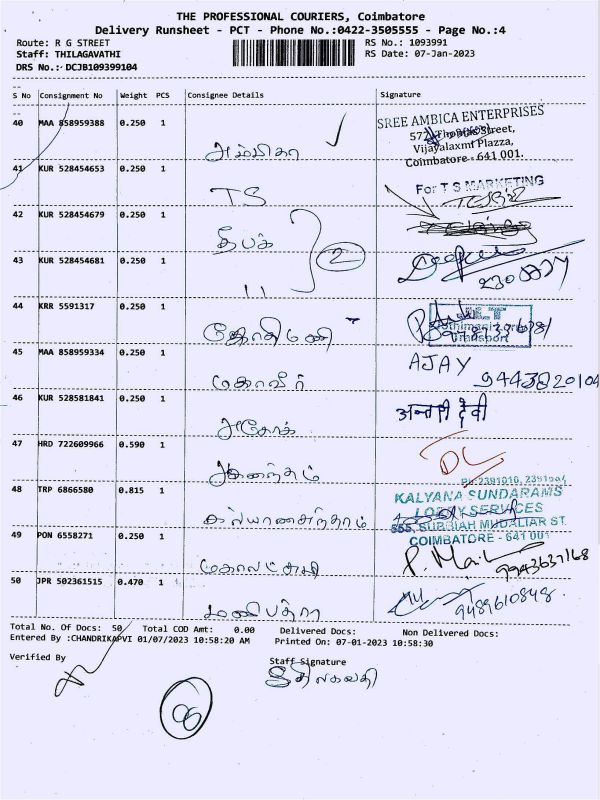 THE PROFESSIONAL COURIERS, Coimbatore
Delivery Runsheet - PCT - Phone No.:0422-3505555 - Page No.:4
Route: R G STREET
RS No.: 1093991
Staff: THILAGAVATHI
RS Date: 07-Jan-2023
DRS No.: DCJB109399104
S No Consignment No Weight PCS Consignee Details Signature
40 MAA 858959388 0.250 1
SREE AMBICA ENTERPRISES
Vijayalaxmi Plazza,
Coimbatore - 641 001.
அம்பிகா
41 KUR 528454653 0.250 1
For T S MARKETING
TS
42 KUR 528454679 0.250 1
தீபக்
2
43 KUR 528454681 0.250 1
11
44 KRR 5591317 0.250 1
ஜோதிமணி
Transport
45 MAA 858959334 0.250 1
AJAY
9443820104
மகாவீர்
46 KUR 528581841 0.250 1
அசோக்
47 HRD 722609966 0.590 1
DL
ஆனந்தம்
48 TRP 6866580 0.815 1
Ph:2391016, 2391994
KALYANA SUNDARAMS
LORRY SERVICES
555, SUBBIAH MUDALIAR ST
COIMBATORE - 641 001
கல்யாணசுந்தரம்
49 PON 6558271 0.250 1
9943637168
மகாலட்சுமி
50 JPR 502361515 0.470 1
9489610848.
மணிபத்ரா
Total No. Of Docs: 50 Total COD Amt: 0.00 Delivered Docs: Non Delivered Docs:
Entered By :CHANDRIKAPVI 01/07/2023 10:58:20 AM Printed On: 07-01-2023 10:58:30
Verified By
Staff Signature
திலகவதி